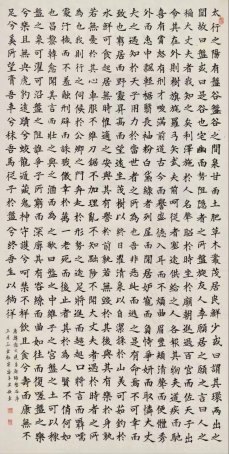 太行之陽有盤谷盤谷之間泉甘而土肥草木藂茂居民鮮少或曰謂其環兩山之
間故曰盤或曰是谷也宅幽而勢阻隱者之所盤旋友人李愿居之愿之言曰人之
稱大丈夫者我知之矣利澤施於人名聲昭於時坐於廟朝進退百官而佐天子出
令其在外則樹旗旄羅弓矢武夫前呵從者塞途供給之人各執其物夾道而疾馳
喜有賞怒有刑才畯滿前道古今而譽盛德入耳而不煩曲眉豐頰清聲而便體秀
外而惠中飄輕裾翳長袖粉白黛綠者列屋而閑居妒寵而負恃爭妍而取憐大丈
夫之遇知於天子用力於當世者之所為也吾非惡此而逃之是有命焉不可幸而
致也窮居而野處升高而望遠坐茂樹以終日濯清泉以自潔採於山美可茹釣於
水鮮可食起居無時惟適之安與其有譽於前孰若無毀於其後與其有樂於身孰
若無憂於其心車服不維刀鋸不加理亂不知黜陟不聞大丈夫不遇於時者之所
為也我則行之伺候於公卿之門奔走於形勢之途足將進而趑趄口將言而囁嚅
處汙穢而不羞觸刑辟而誅戮徼倖於萬一老死而後止者其於為人賢不肖何如
也昌黎韓愈聞其言而壯之與之酒而為之歌曰盤之中維子之宮盤之土可以稼
盤之泉可濯可沿盤之阻誰爭子所窈而深廓其有容繚而曲如往而復嗟盤之樂
兮樂且無央虎豹遠跡兮蛟龍遁藏鬼神守護兮呵禁不祥飲且食兮壽而康無不
足兮奚所望膏吾車兮秣吾馬從子於盤兮終吾生以徜徉